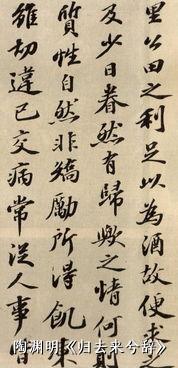 里公田之利足以為酒故便求之
及少日眷然有歸歟之情何則
質性自然非矯勵所得飢凍
雖切違己交病常從人事皆
陶渊明《归去来兮辞》